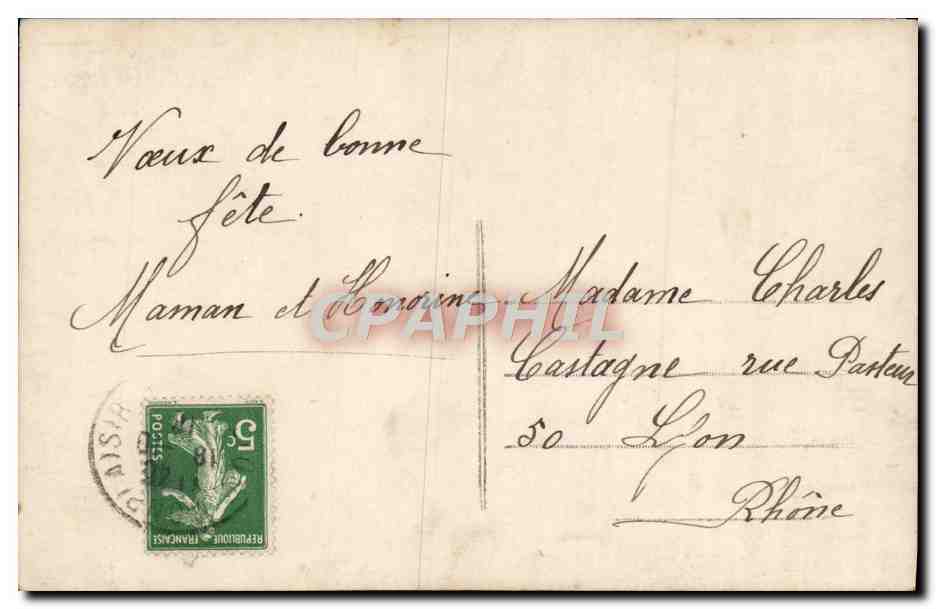 Vœux de bonne
fête.
Maman et Honorine
Madame Charles
Castagne rue Pasteur
50 Lyon
Rhône
CPAPHIL
5c
POSTES
REPUBLIQUE FRANÇAISE
18